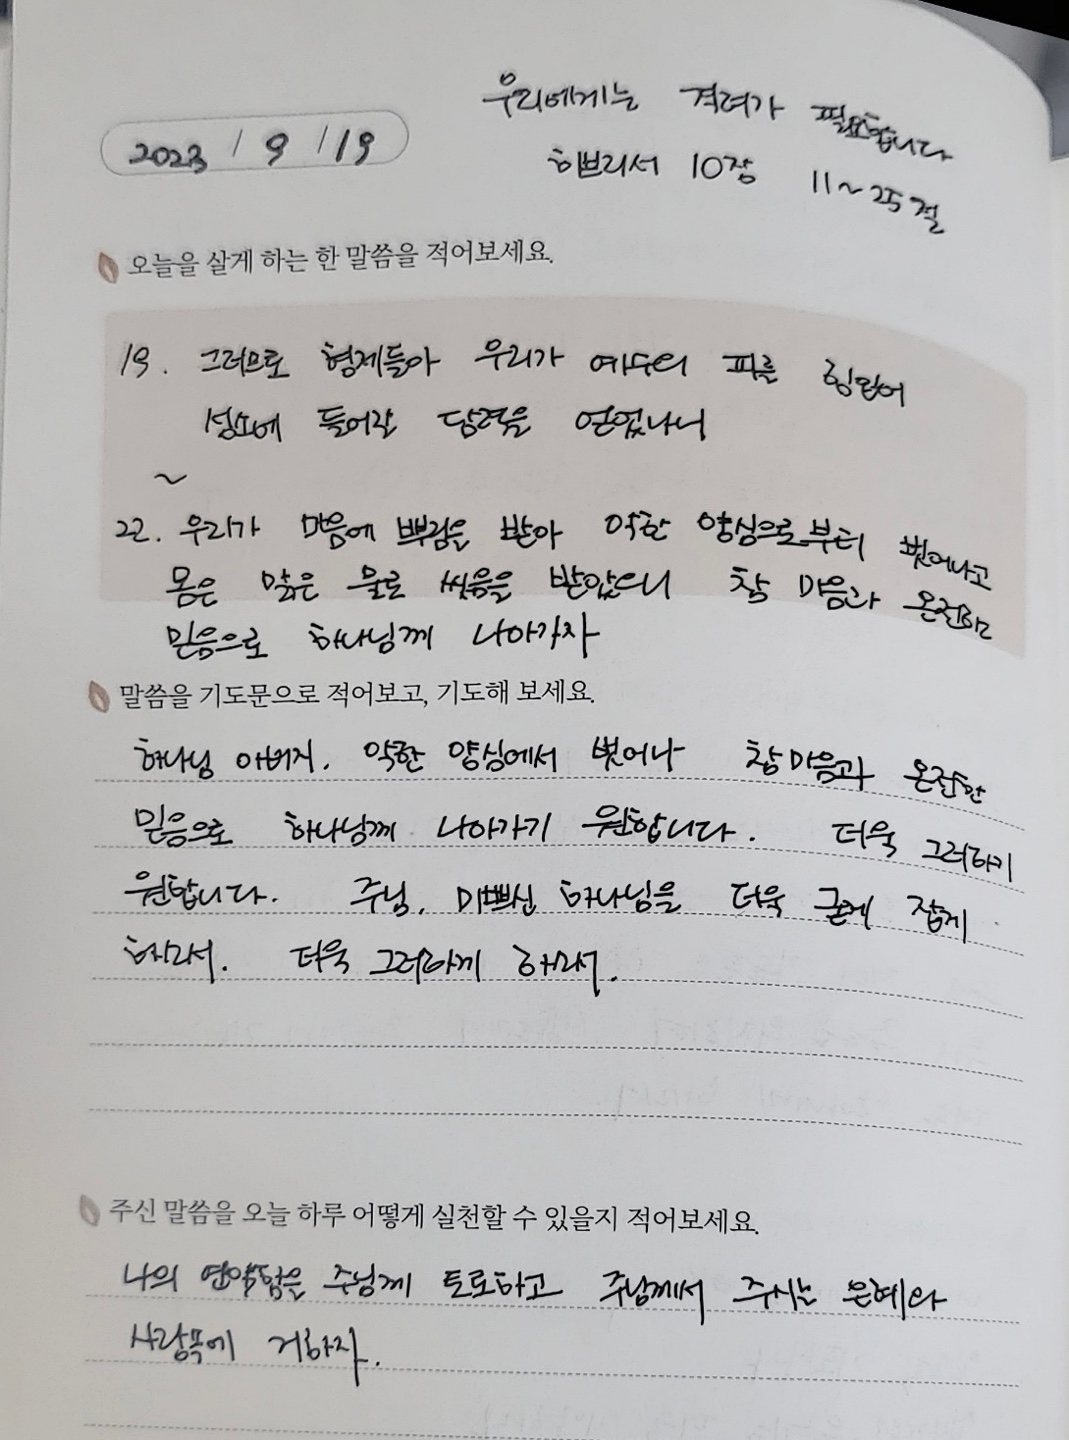 우리에게는 격려가 필요합니다
2023 / 9 / 19
히브리서 10장 11~25절
오늘을 살게 하는 한 말씀을 적어보세요.
19. 그러므로 형제들아 우리가 예수의 피를 힘입어
성소에 들어갈 담력을 얻었나니
~
22. 우리가 마음에 뿌림을 받아 악한 양심으로부터 벗어나고
몸은 맑은 물로 씻음을 받았으니 참 마음과 온전한
믿음으로 하나님께 나아가자
말씀을 기도문으로 적어보고, 기도해 보세요.
하나님 아버지. 악한 양심에서 벗어나 참 마음과 온전한
믿음으로 하나님께 나아가기 원합니다. 더욱 그러하기
원합니다. 주님, 미쁘신 하나님을 더욱 굳게 잡게
하소서. 더욱 그러하게 하소서.
주신 말씀을 오늘 하루 어떻게 실천할 수 있을지 적어보세요.
나의 연약함을 주님께 토로하고 주님께서 주시는 은혜와
사랑속에 거하자.